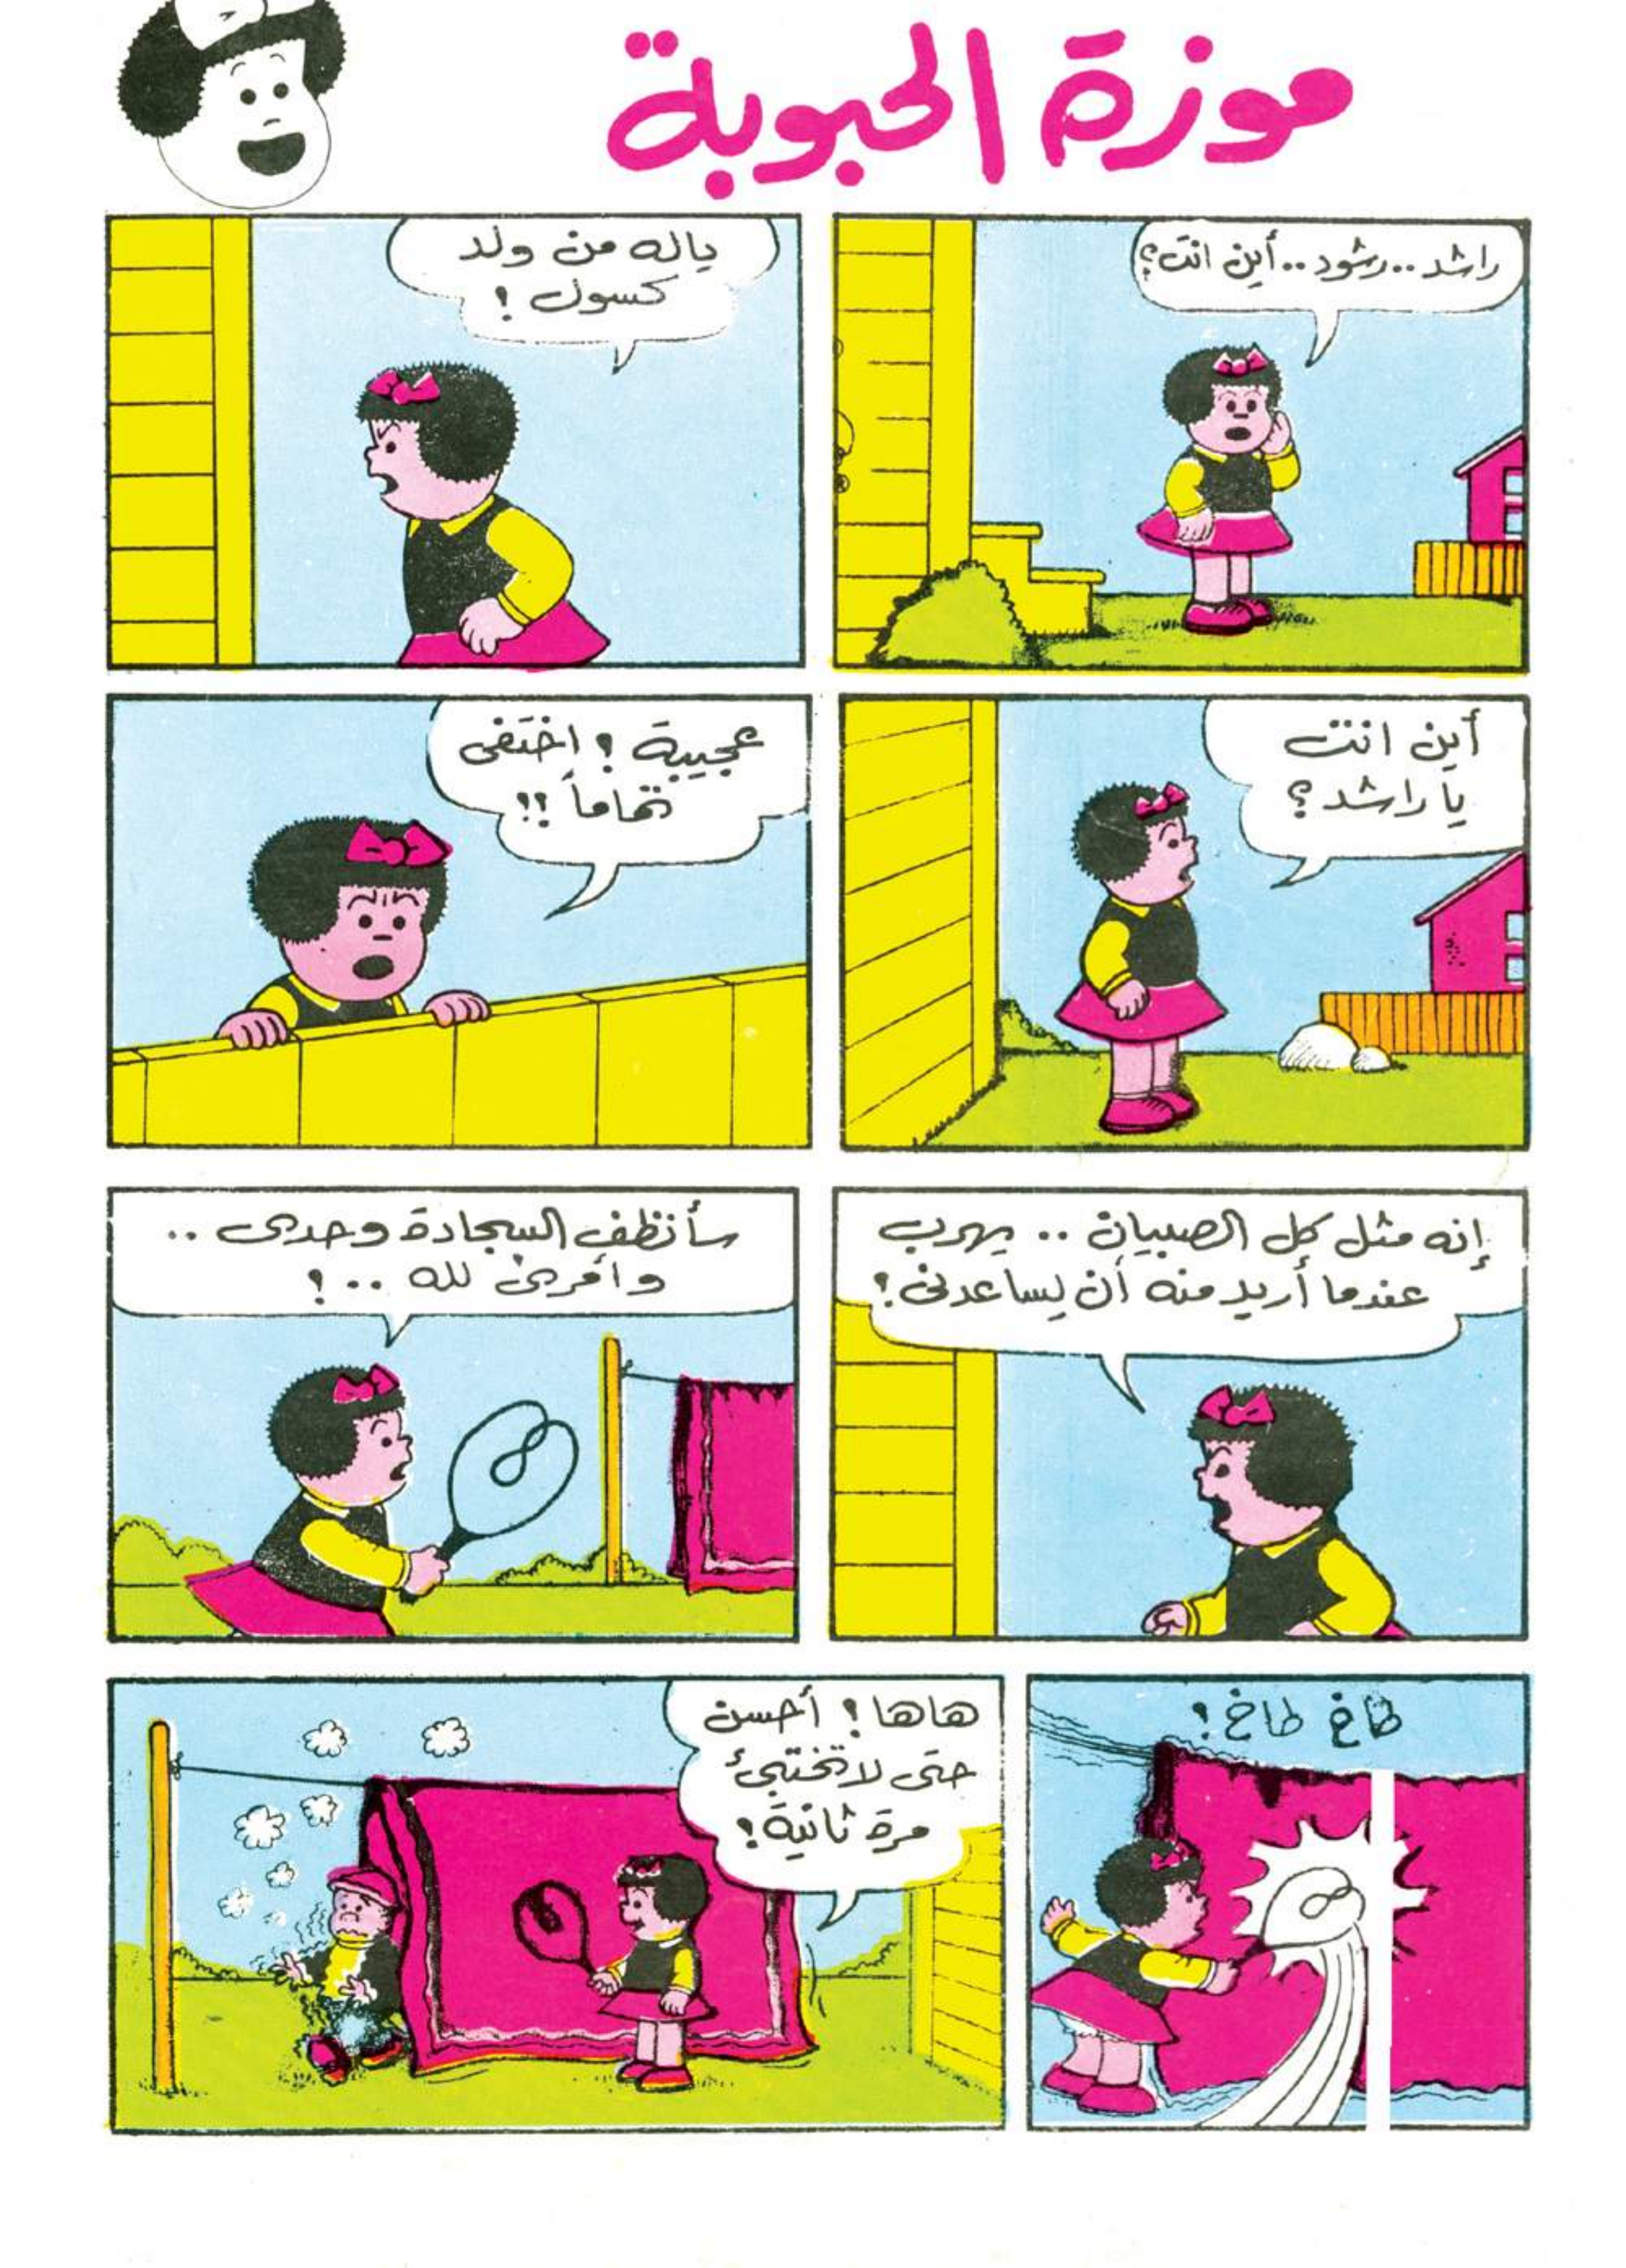 موزة الحبوبة
راشد..رشود..أين انت؟
ياله من ولد
كسول !
أين انت
يا راشد ؟
عجيبة ! اختفى
تماماً !!
إنه مثل كل الصبيان .. يهرب
عندما أريد منه أن يساعدني !
سأنظف السجادة وحدى ..
وأمري لله .. !
طاخ طاخ !
هاها ! أحسن
حتى لا تختبئ
مرة ثانية !